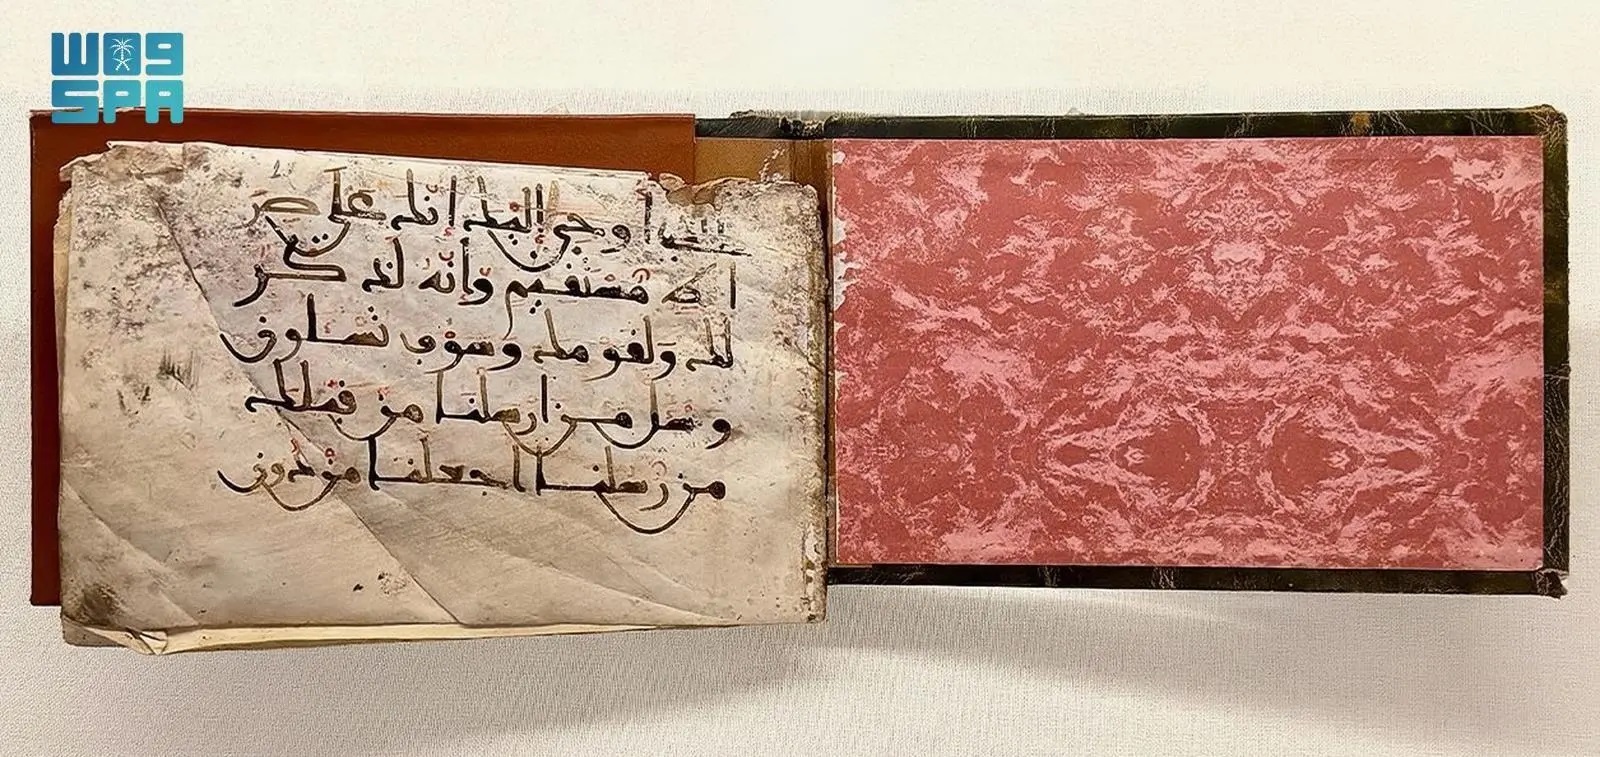 واس
SPA
أوحي إليك إنك على صر
ا ط مستقيم وإنه لذكر
لك ولقومك وسوف تسلون
وسل من ارسلنا من قبلك
من رسلنا اجعلنا من دون